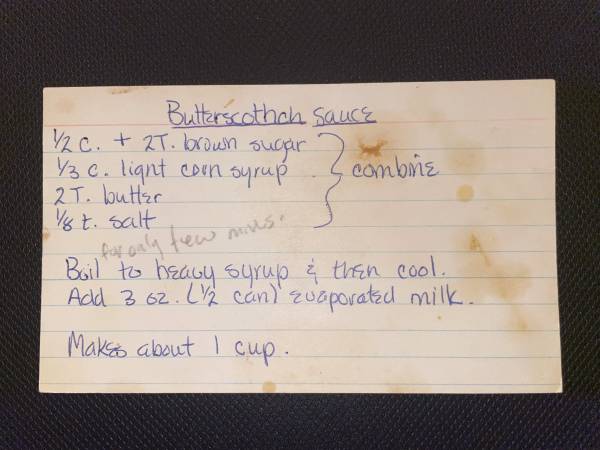 Butterscothch Sauce
1/2 c. + 2T. brown sugar
1/3 c. light corn syrup
2 T. butter
1/8 t. salt
combine
for only few mins.
Boil to heavy syrup & then cool.
Add 3 oz. (1/2 can) evaporated milk.
Makes about 1 cup.